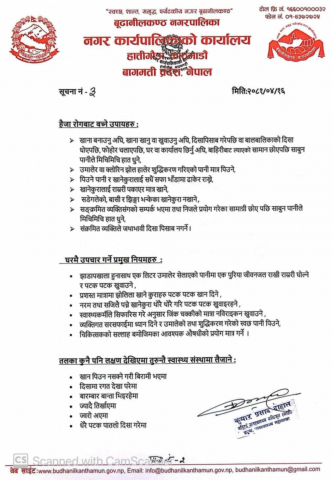 "स्वच्छ, शान्त, समृद्ध, पर्यटकीय नगर बूढानीलकण्ठ"
बूढानीलकण्ठ नगरपालिका
नगर कार्यपालिकाको कार्यालय
हात्तीगौडा, काठमाडौं
बागमती प्रदेश, नेपाल
टोल फ्रि नं.
फोन नं.
सूचना नं - ३
मिति:२०८१/०४/१६
हैजा रोगबाट बच्ने उपायहरु :
खाना बनाउनु अघि, खाना खानु वा खुवाउनु अघि, दिसापिसाब गरेपछि वा बालबालिकाको दिसा
धोएपछि, फोहोर चलाएपछि, घर वा कार्यालय छिर्नु अघि, बाहिरीबाट ल्याएको सामान छोएपछि साबुन
पानीले मिचिमिचि हात धुने,
उमालेर वा क्लोरिन झोल हालेर शुद्धिकरण गरिएको पानी मात्र पिउने,
पिउने पानी र खानेकुरालाई सधैं सफा भाँडामा ढाकेर राख्ने,
खानेकुरालाई राम्ररी पकाएर मात्र खाने,
सडेगलेको, बासी र झिङ्गा भन्केका खानेकुरा नखाने,
सङ्क्रमित व्यक्तिसंगको सम्पर्क भएमा तथा निजले प्रयोग गरेका सामाग्री छोए पछि साबुन पानीले
मिचिमिचि हात धुने,
संक्रमित व्यक्तिले जथाभावी दिसा पिसाब नगर्ने।
घरमै उपचार गर्ने प्रमुख नियमहरु :
झाडापखाला हुनासाथ एक लिटर उमालेर सेलाएको पानीमा एक पुरिया जीवनजल राखी राम्ररी घोल्ने
र पटक पटक खुवाउने ,
प्रशस्त मात्रामा झोलिलो खाने कुराहरु पटक पटक खान दिने ,
नरम तथा सजिलै पच्ने खानेकुरा थोरै थोरै गरि पटक पटक खुवाइरहने ,
स्वास्थ्यकर्मीले सिफारिस गरे अनुसार जिंक चक्कीको मात्रा नबिराइकन खुवाउने ,
व्यक्तिगत सरसफाईमा ध्यान दिने र उमालेको तथा शुद्धिकरण गरेको स्वच्छ पानी पिउने,
चिकित्सकको सल्लाह बमोजिमका आवश्यक औषधीको प्रयोग मात्र गर्ने ।
तलका कुनै पनि लक्षण देखिएमा तुरुन्तै स्वास्थ्य संस्थामा लैजाने :
खान पिउन नसक्ने गरी बिरामी भएमा
दिसामा रगत देखा परेमा
बारम्बार बान्ता भिइरहेमा
ज्यादै तिर्खाएमा
ज्वरो आएमा
धेरै पटक पातलो दिसा गरेमा
CS Scanned with CamScanner
वेव साईट:www.budhanilkanthamun.gov.np, Email: info@budhanilkanthamun.gov.np / budhanilkanthamun@gmail.com